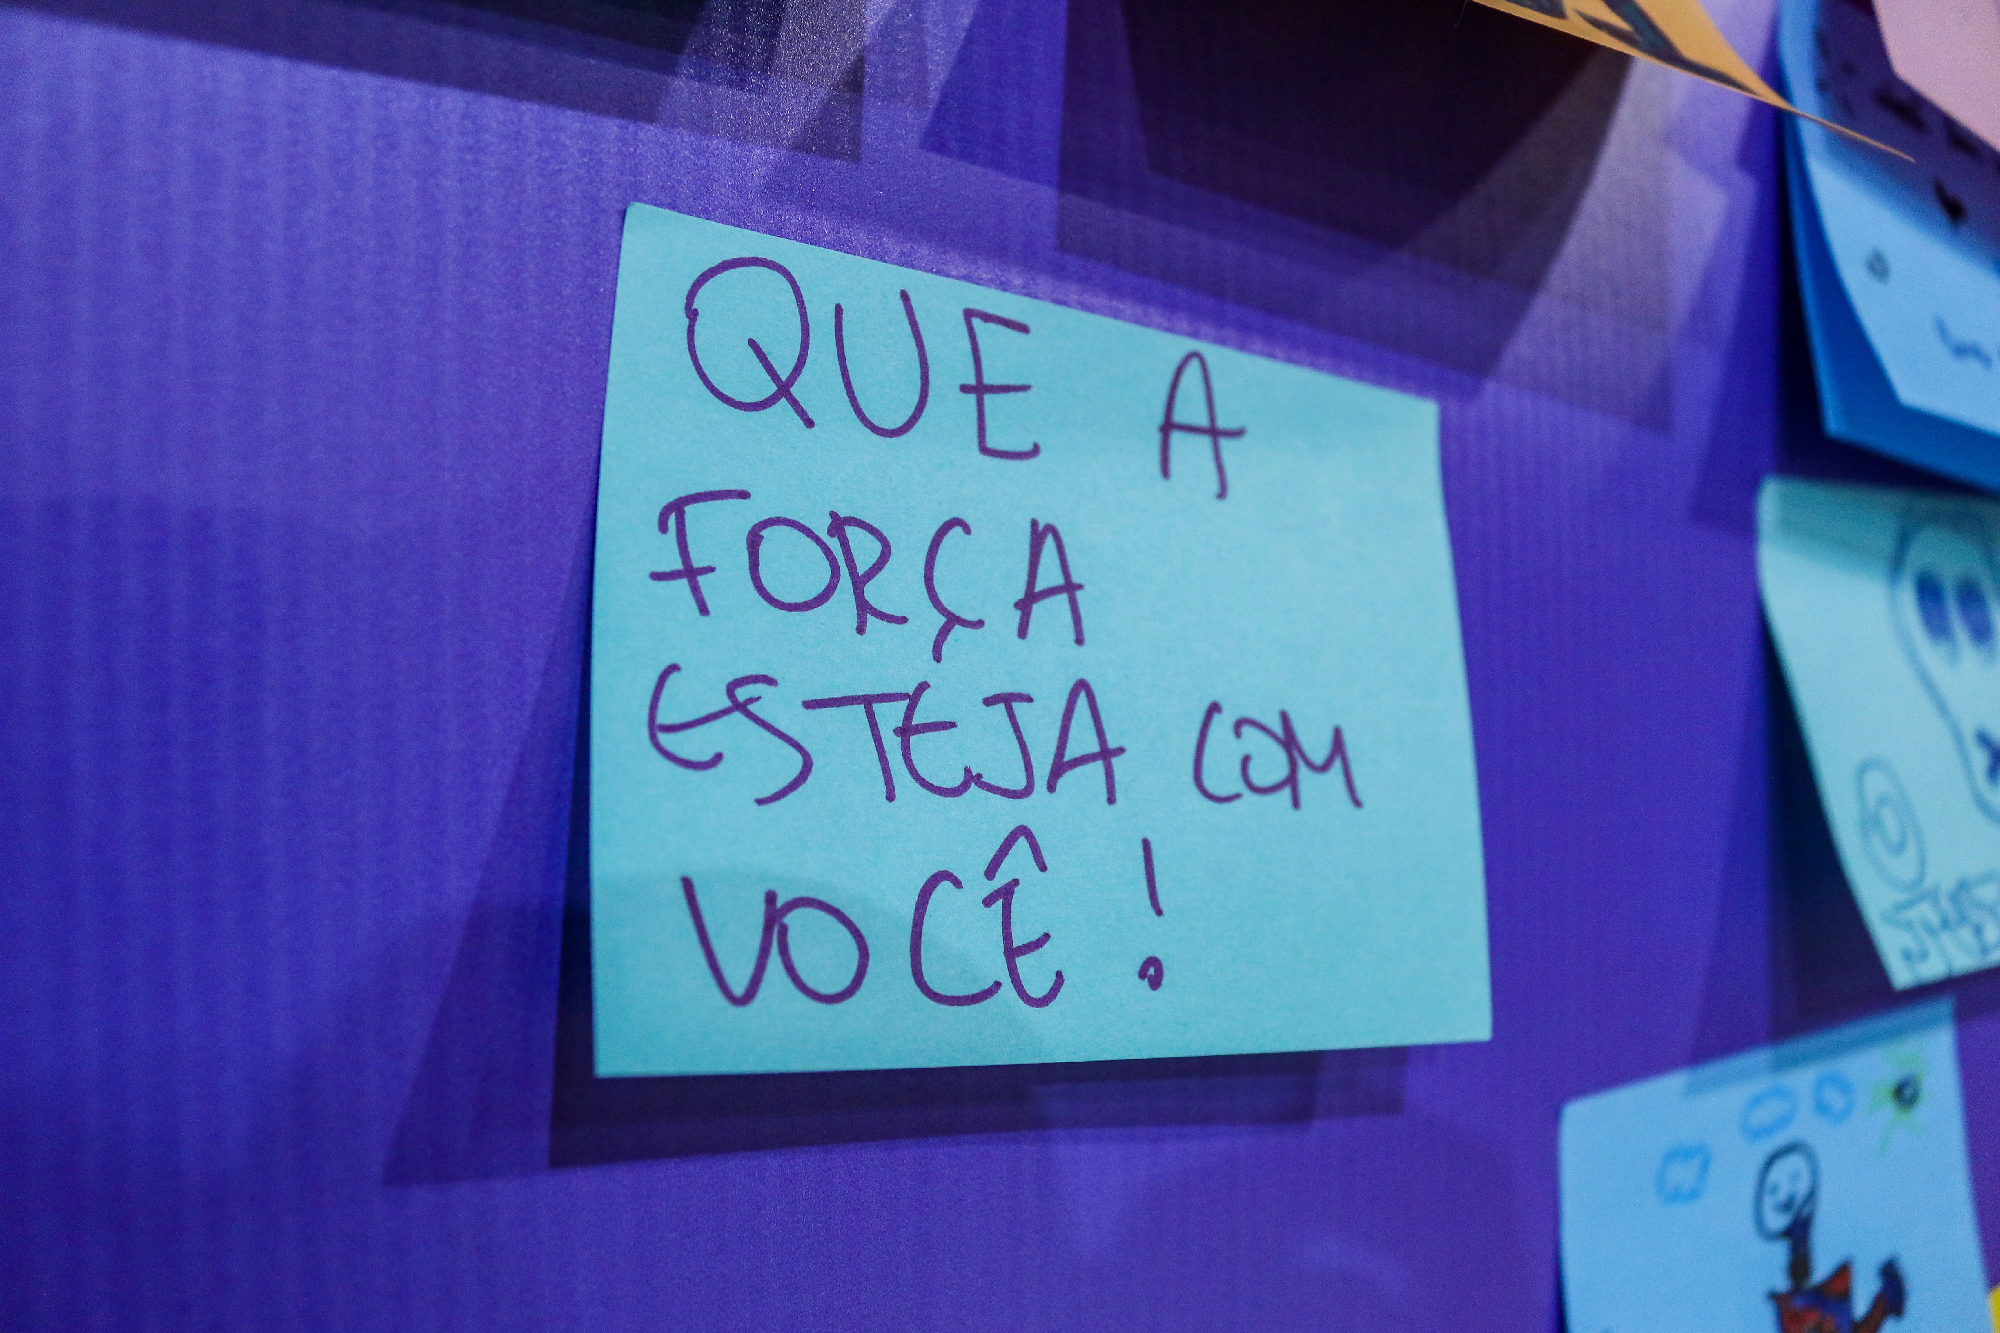 QUE A
FORÇA
ESTEJA COM
VOCÊ!